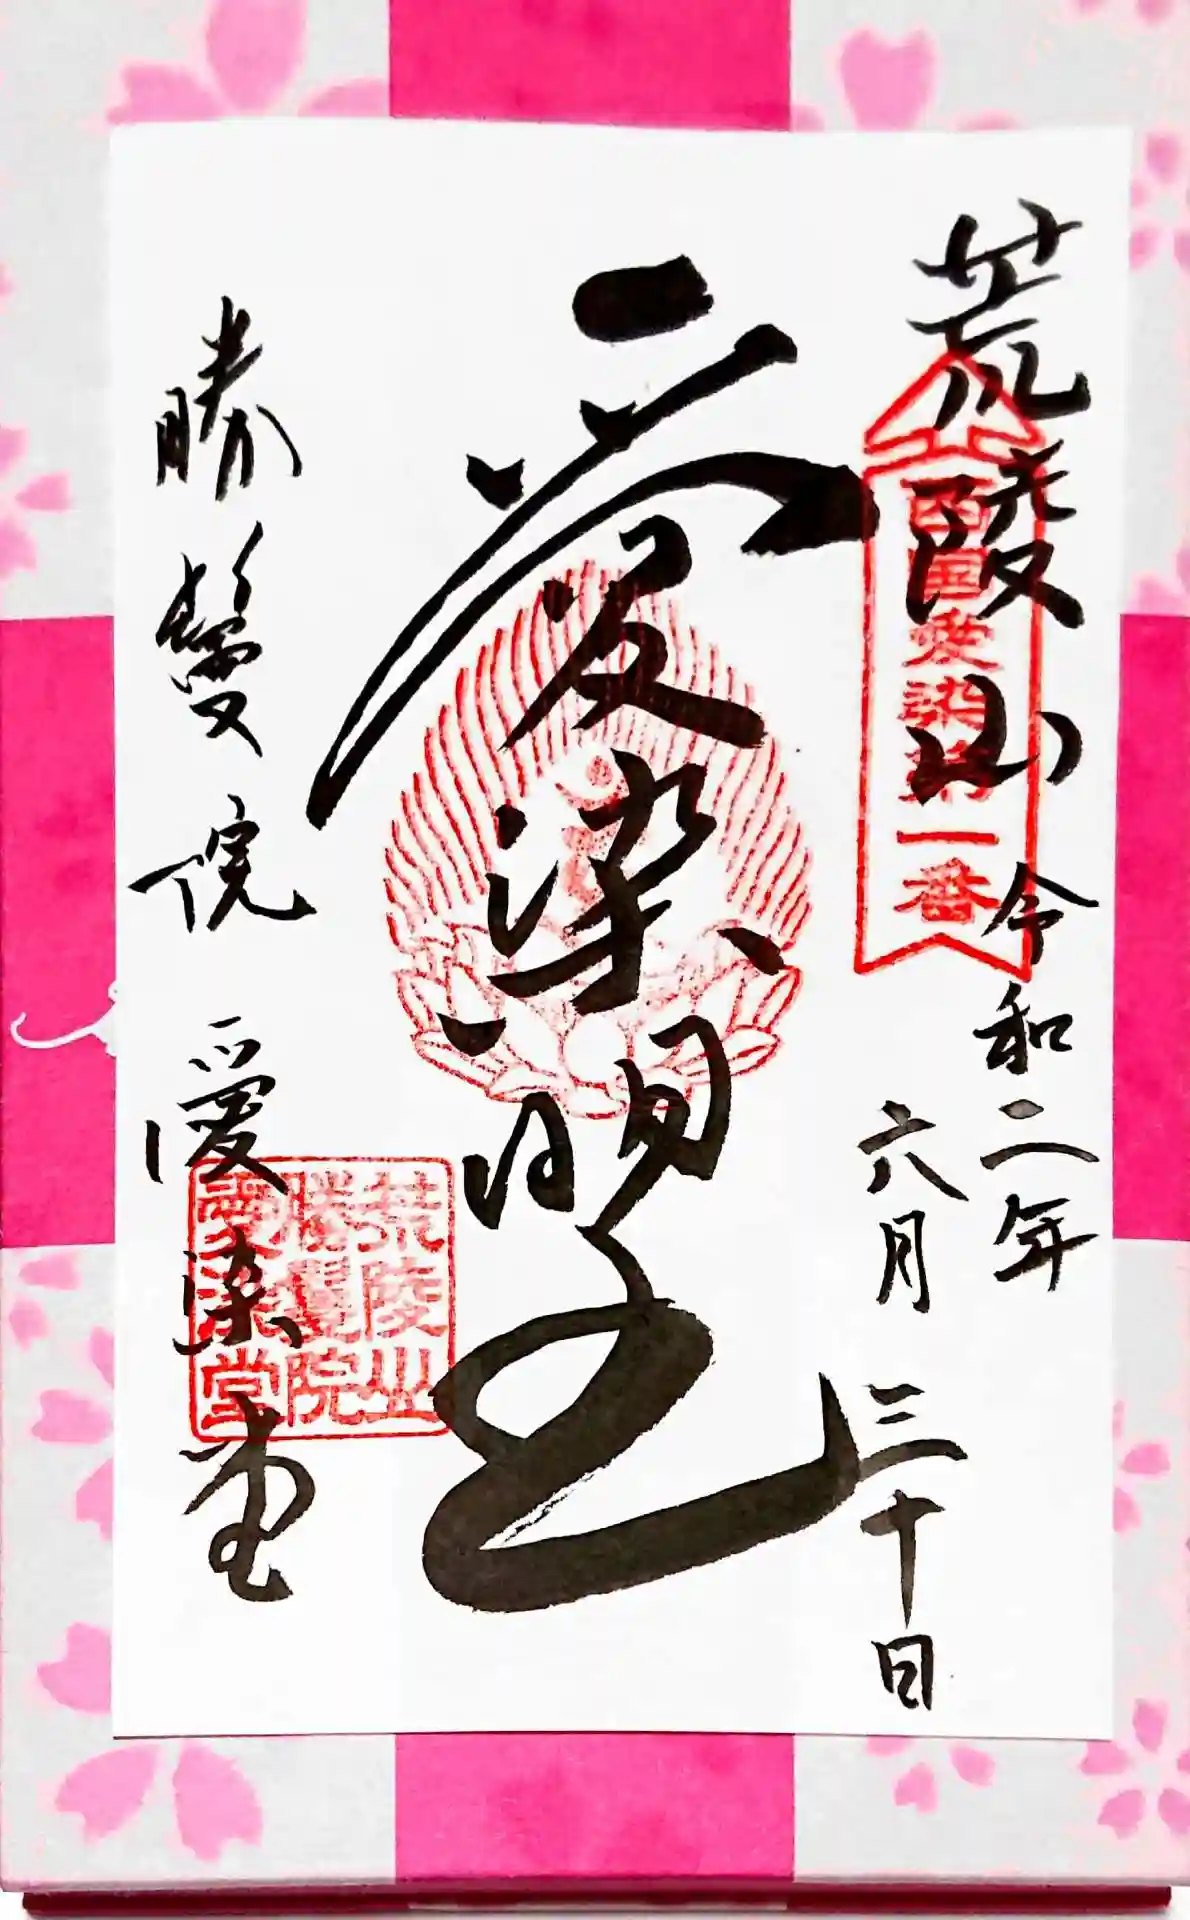 荒陵山
西国愛染第一番
令和二年
六月三十日
愛染明王
荒陵山
勝鬘院
愛染堂
勝鬘院 愛染堂